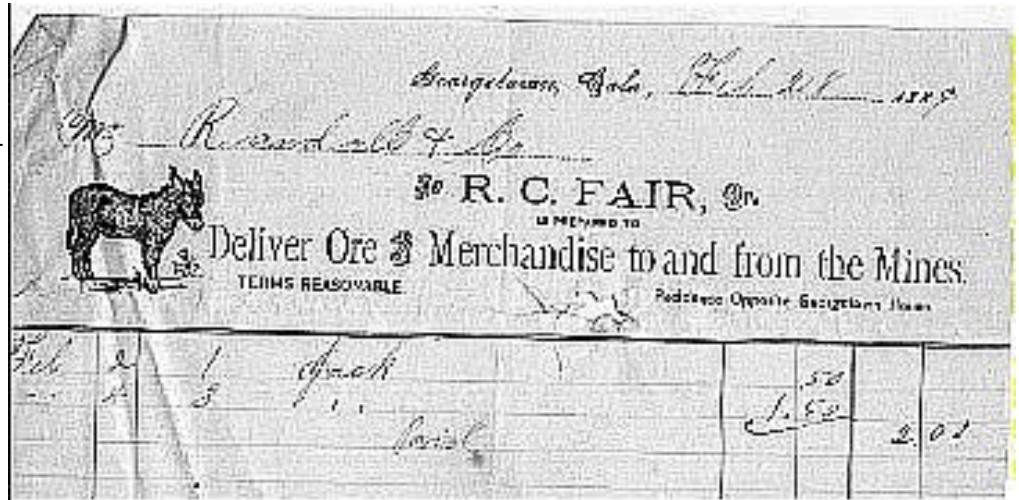 Georgetown, Colo., Feb 28 1889
Mr Randall & Co
To R. C. FAIR, Dr.
IS PREPARED TO
Deliver Ore & Merchandise to and from the Mines.
TERMS REASONABLE
Residence Opposite Georgetown House
Feb 2 1 Jack .50
" 3 " 1.50 2.00
Paid